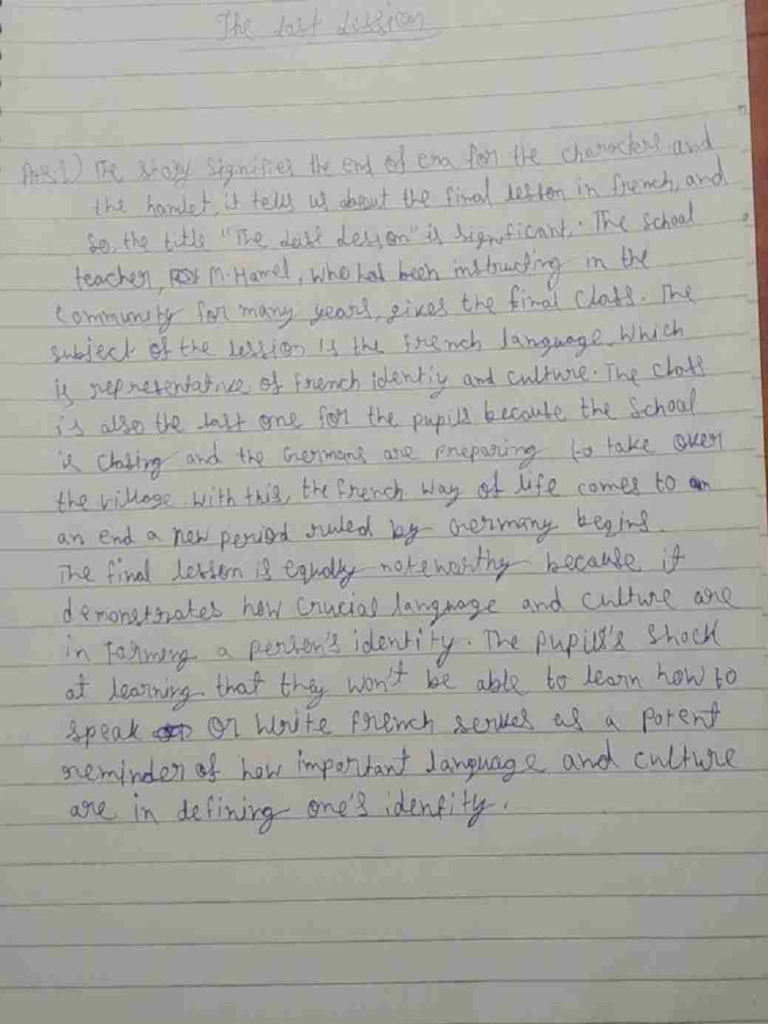 The Last Lession
Ans 1) The story signifies the end of era for the characters and
the hamlet, it tells us about the final lesson in french, and
so, the title "The Last Lesson" is significant. The school
teacher, M. Hamel, who has been instructing in the
community for many years, gives the final class. The
subject of the lession is the french language which
is representative of french identiy and culture. The class
is also the last one for the pupils because the school
is closing and the Germans are preparing to take over
the village. with this, the french way of life comes to an
an end a new period ruled by Germany begins.
The final lesson is equally noteworthy because it
demonstrates how crucial language and culture are
in forming a person's identity. The pupils's shock
at learning that they won't be able to learn how to
speak or write french serves as a potent
reminder of how important language and culture
are in defining one's identity.